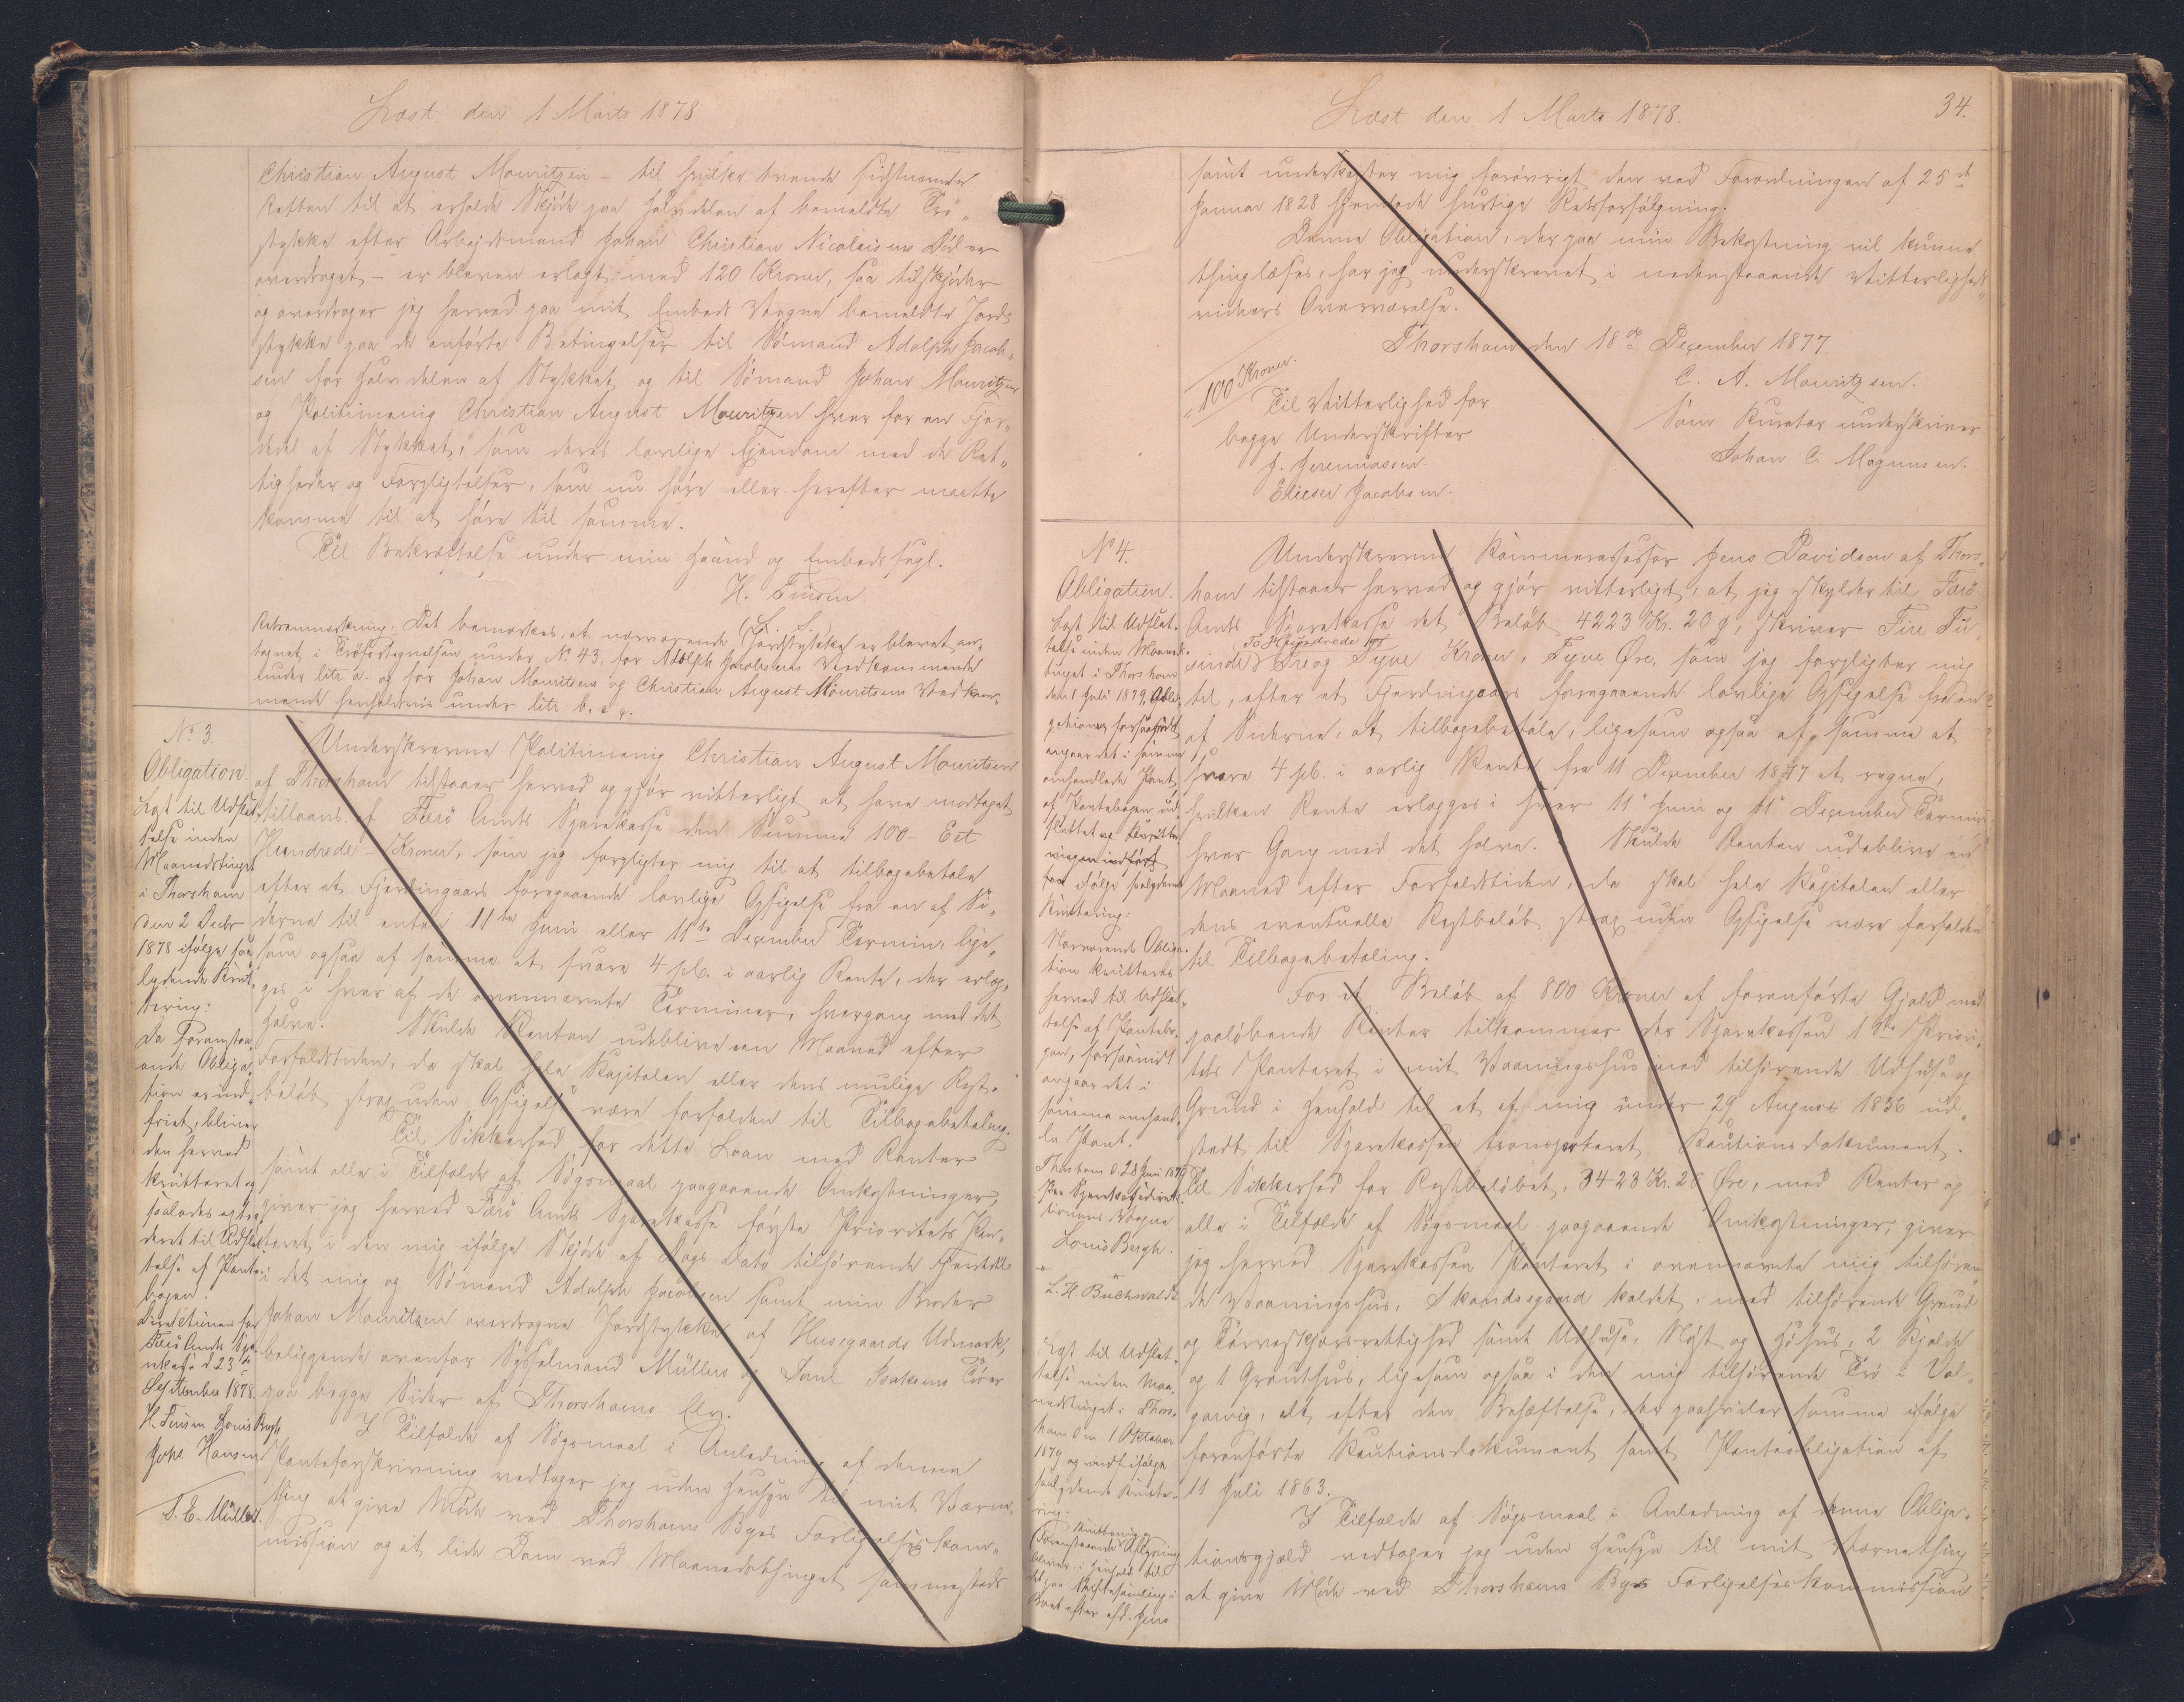 Læst den 1 Marts 1878
Christian August Mouritzen – til hvilke trende sidstnævnte
Retten til at erholde Skjøde paa Halvdelen af bemeldte Trö„
stykke efter Arbejdsmand Johan Christian Nicolaisens Död er
overdraget – er bleven erlagt med 120 Kroner, saa tilskjöder
og overdrager jeg herved paa mit Embeds Vegne bemeldte Jord„
stykke paa de anförte Betingelser til Sömand Adolph Jacob„
sen for Halvdelen af Stykket, og til Sömand Johan Mouritzen
og Politimenig Christian August Mouritzen hver for en Fjer„
dedel af Stykket, som deres lovlige Ejendom med de Ret„
tigheder og Forpligtelser, som nu höre eller herefter maatte
komme til at höre til samme.
Til Bekræftelse under min Haand og Embedssegl.
H. Finsen
(L. S.)
Retsanmærkning: Det bemærkes, at nærværende Jordstykke er blevet an„
tegnet i Tröfortegnelsen under No 43, for Adolph Jacobsens Vedkommende
under litr a. og for Johan Mouritsens og Christian August Mouritsens Vedkom„
mende henholdsvis under litr b. & c.
No 3.
Obligation.
Læst til Udslet„
telse inden
Maanedstinget
i Thorshavn
den 2 Decbr
1878 ifølge saa
lydende Kvit„
tering:
Da Foranstaa„
ende Obliga„
tion er ind„
friet, bliver
den herved
kvitteret og
saaledes og
deret til Udslet
telse af Pante„
bogen.
Direktionen for
Færö Amts Spa„
rekasse d 23de
September 1878.
H. Finsen Louis Bergh
Johs. Hansen
S. E. Müller.
Underskrevne Politimenig Christian August Mouritsen
af Thorshavn tilstaaer herved og gjör vitterligt at have modtaget
tillaans af Færö Amts Sparekasse den Summa 100 – Et
Hundrede – Kroner, som jeg forpligter mig til at tilbagebetale
efter et Fjerdingaars foregaaende lovlige Opsigelse fra en af Si„
derne til enten 11te Juni eller 11te December Termin, lige„
som ogsaa af samme at svare 4 pCt. i aarlig Rente, der erlæg„
ges i hver af de ovennævnte Terminer, hvergang med det
halve. Skulde Renten udeblive een Maaned efter
Forfaldstiden, da skal hele Kapitalen eller dens mulige Rest„
belöb strax uden Opsigelse være forfalden til Tilbagebetaling.
Til Sikkerhed for dette Laan med Renter
samt alle i Tilfælde af Sögsmaal paagaaende Omkostninger,
giver jeg herved Færö Amts Sparekasse förste Prioritets Pan„
teret i den mig ifölge Skjöde af Dags Dato tilhörende Fjerdedel
i det mig og Sömand Adolph Jacobsen samt min Broder
Johan Mouritzen overdragne Jordstykke af Husegaards Udmark,
beliggende ovenfor Sysselmand Müllers og Poul Isaksens Tröer
paa begge Sider af Thorshavns Elv.
I Tilfælde af Sögsmaal i Anledning af denne
Panteforskrivning vedtager jeg uden Hensyn til mit Værne„
thing at give Möde ved Thorshavns Byes Forligelseskom„
mission og at lide Dom ved Maanedsthinget sammesteds
Læst den 1 Marts 1878.
34.
samt underkaster mig forövrigt den ved Forordningen af 25de
Januar 1828 hjemlede hurtige Retsforfölgning.
Denne Obligation, der paa min Bekostning vil kunne
thinglæses, har jeg underskrevet i nedenstaaende Vitterligheds„
vidners Overværelse.
Thorshavn den 18de December 1877.
100 Kroner.
C. A. Mouritzsen.
Til Vitterlighed for
begge Underskrifter
J. Jeremiassen.
Elieser Jacobsen.
Som Kurator underskriver
Johan C. Magnussen.
No 4.
Obligation.
Læst til Udslet„
telse inden Maaneds„
tinget i Thorshavn
den 1 Juli 1879, Obli„
gationen forsaavidt
angaar det i samme
omhandlede Pant,
af Pantebogen ud„
slettet og
ifölge saalydende
Kvittering:
Nærværende Obliga„
tion kvitteres
herved til Udslet„
telse af Pantebo„
gen, forsaavidt
angaar det i
samme omhand„
lede Pant.
Thorshavn d. 28 Juni 1879
Paa Sparekassedirek„
tionens Vegne
Louis Bergh.
L. H. Buchwaldt
Læst til Udslet„
telse inden Maa„
nedstinget i Thors„
havn den 1 Oktober
1879 og ifölge
saalydende Kvitte„
ring:
Foranstaaende
bliver i Henhold til
det paa Skiftesamling i
Boet efter afd. Jens
Underskrevne Kammerassessor Jens Davidsen af Thors„
havn tilstaaer herved og gjör vitterligt, at jeg skylder til Færö
Amts Sparekasse det Belöb 4223 Kr. 20 Ø, skriver Fire Tu„
sinde To Hundrede og Tre og Tyve Kroner, Tyve Øre, som jeg forpligter mig
til, efter et Fjerdingaars foregaaende lovlige Opsigelse fra en
af Siderne, at tilbagebetale, ligesom ogsaa af samme at
svare 4 pCt. i aarlig Rente fra 11 December 1877 at regne,
hvilken Rente erlægges i hver 11te Juni og 11te December Termin
hver Gang med det halve. Skulde Renten udeblive en
Maaned efter Forfaldstiden, da skal hele Kapitalen eller
dens eventuelle Restbelöb strax uden Opsigelse være forfalden
til Tilbagebetaling.
For et Belöb af 800 Kroner af foranförte Gjæld med
paalöbende Renter tilkommer der Sparekassen 1ste Priori„
tets Panteret i mit Vaaningshus med tilhörende Udhuse og
Grund i Henhold til et af mig under 29 August 1856 ud„
stedt til Sparekassen transporteret Kautionsdokument.
Til Sikkerhed for Restbelöbet, 3423 Kr. 20 Øre, med Renter og
alle i Tilfælde af Sögsmaal paagaaende Omkostninger, giver
jeg herved Sparekassen Panteret i ovennævnte mig tilhören„
de Vaaningshus, Skandsegaard kaldet, med tilhörende Grund
og Törveskjærsrettighed samt Udhuse, Nöjst og Höhus, 2 Hjalde
og 1 Grouthus, ligesom ogsaa i den mig tilhörende Trö i Val„
garvig, alt efter den Behæftelse, der paahviler samme ifölge
foranförte Kautionsdokument samt Panteobligation af
11 Juli 1863.
I Tilfælde af Sögsmaal i Anledning af denne Obliga„
tionsgjæld vedtager jeg uden Hensyn til mit Værnething
at give Möde ved Thorshavns Byes Forligelseskommission